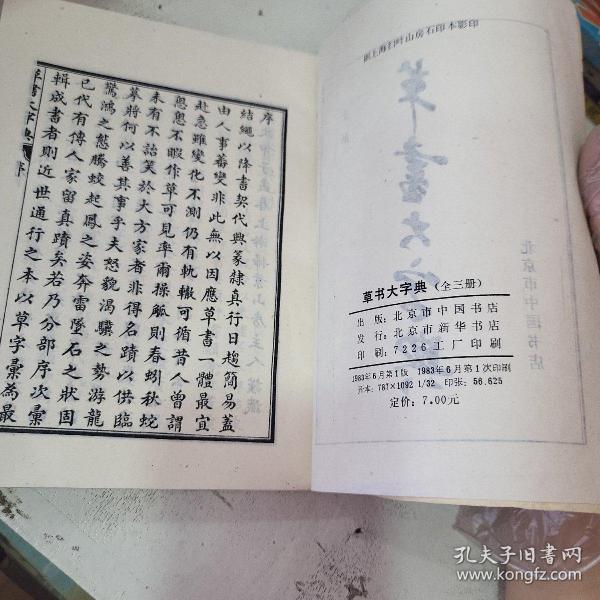 序
結繩以降書契代興篆隸真行日趨簡易蓋
由人事蕃變非此無以因應草書一體最宜
赴急雖變化不測仍有軌轍可循昔人曾謂
悤悤不暇作草可見率爾操觚則春蚓秋蛇
未有不詒笑於大方家者非得名蹟以供臨
摹將何以善其事乎夫怒貌渴驥之勢游龍
驚鴻之態騰蛟起鳳之姿奔雷墜石之狀固
已代有傳人家留真蹟矣若乃分部序次彙
輯成書者則近世通行之本以草字彙為最
草書大字典
序
据上海扫叶山房石印本影印
草書大字
北京市中国书店
草书大字典（全三册）
出版：北京市中国书店
发行：北京市新华书店
印刷：7226工厂印刷
1983年6月第1版 1983年6月第1次印刷
开本：787×1092 1/32 印张：56.625
定价：7.00元
孔夫子旧书网
www.kongfz.com